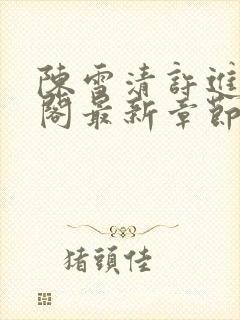 陳雪清許進
閣最新章節
猪頭佳